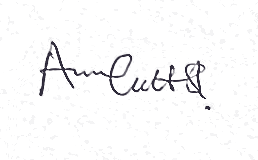 Ann Cutts.